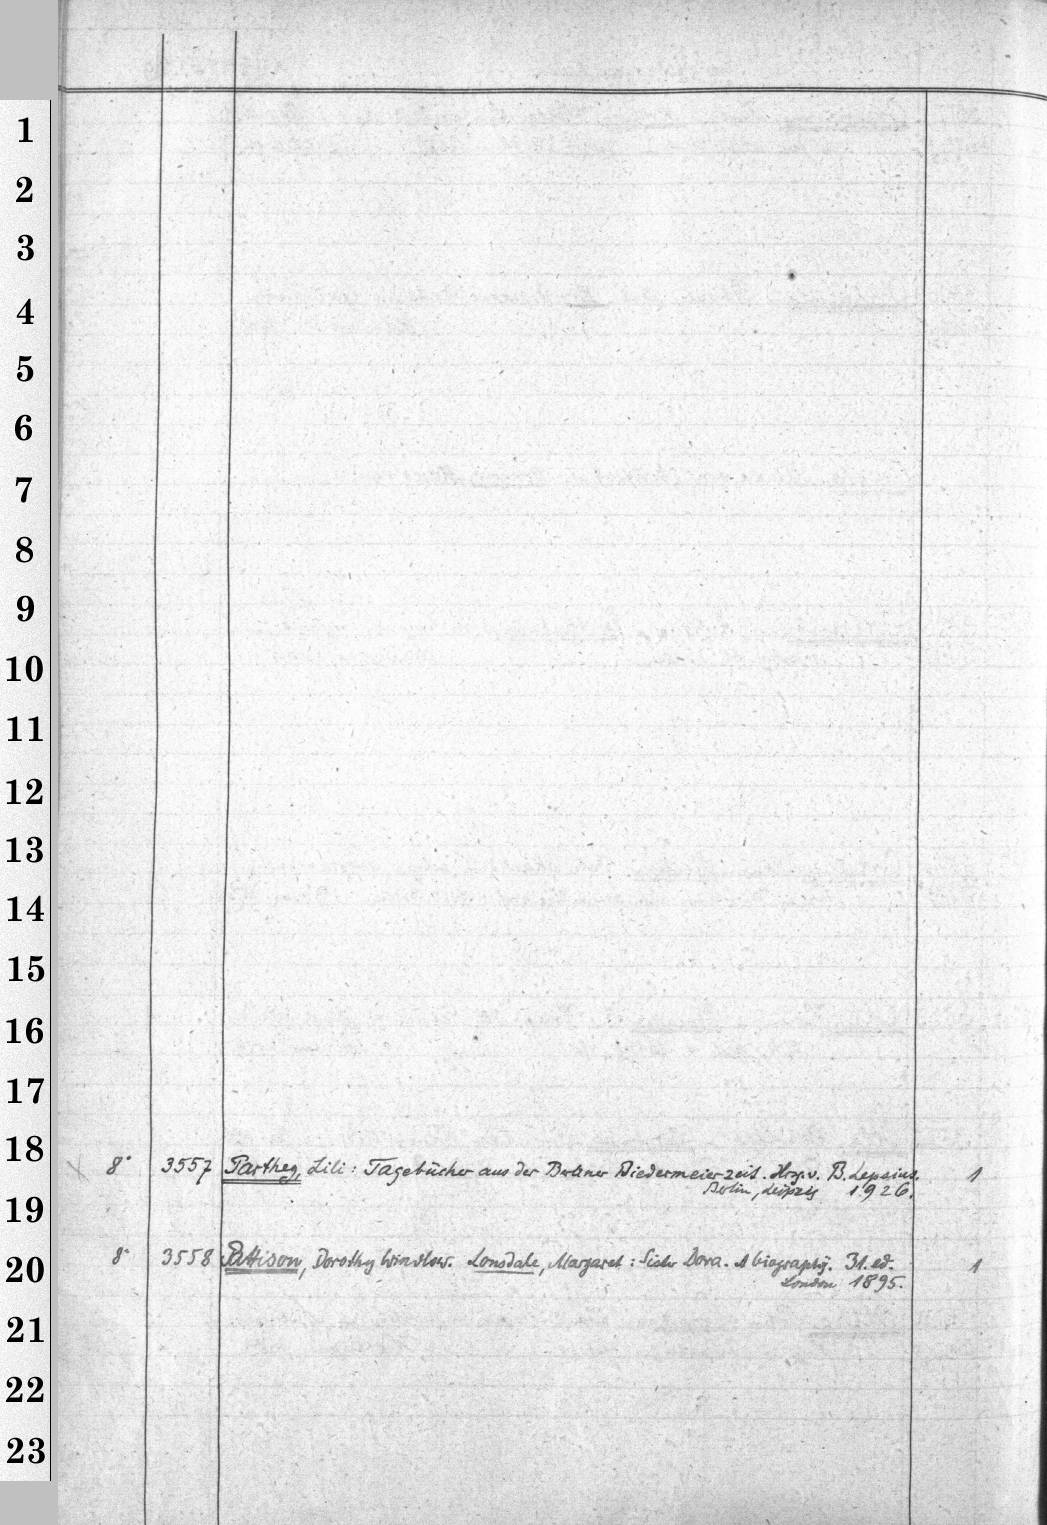 1
2
3
4
5
6
7
8
9
10
11
12
13
14
15
16
17
18
8° 3557 Parthey, Lili: Tagebücher aus der Berliner Biedermeierzeit. Hrsg. v. B. Lepsius. 1
Berlin, Leipzig 1926.
19
8° 3558 Pattison, Dorothy Winslow. Lonsdale, Margaret: Sister Dora. A biography. 31. ed. 1
20
London 1895.
21
22
23